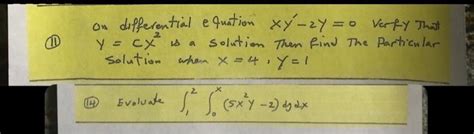 (11) on differential equation xy' - 2y = 0 Verfy That
y = cx² is a solution Then find The Particular
Solution when x = 4, y = 1
(14) Evaluate ∫₁² ∫₀ˣ (5x²y - 2) dy dx